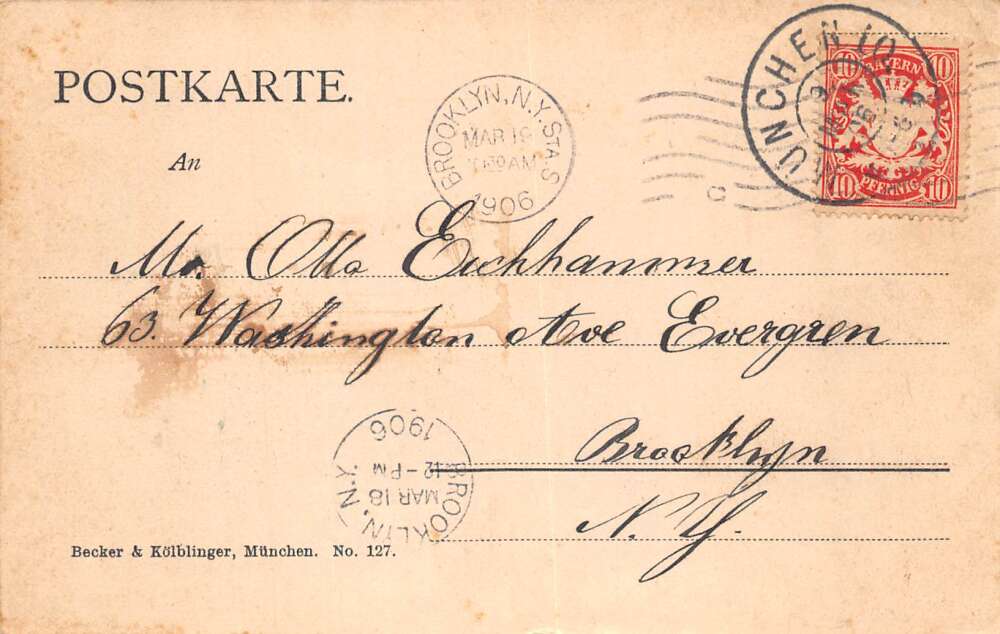 POSTKARTE.
An
BROOKLYN, N.Y. STA. S
MAR 19
AM
1906
MÜNCHEN
BAYERN
10 10
10 PFENNIG 10
Mr. Otto Eichhammer
63. Washington Ave Evergren
Brooklyn
N. Y.
BROOKLYN, N.Y.
MAR 18
12-PM
1906
Becker & Kölblinger, München. No. 127.